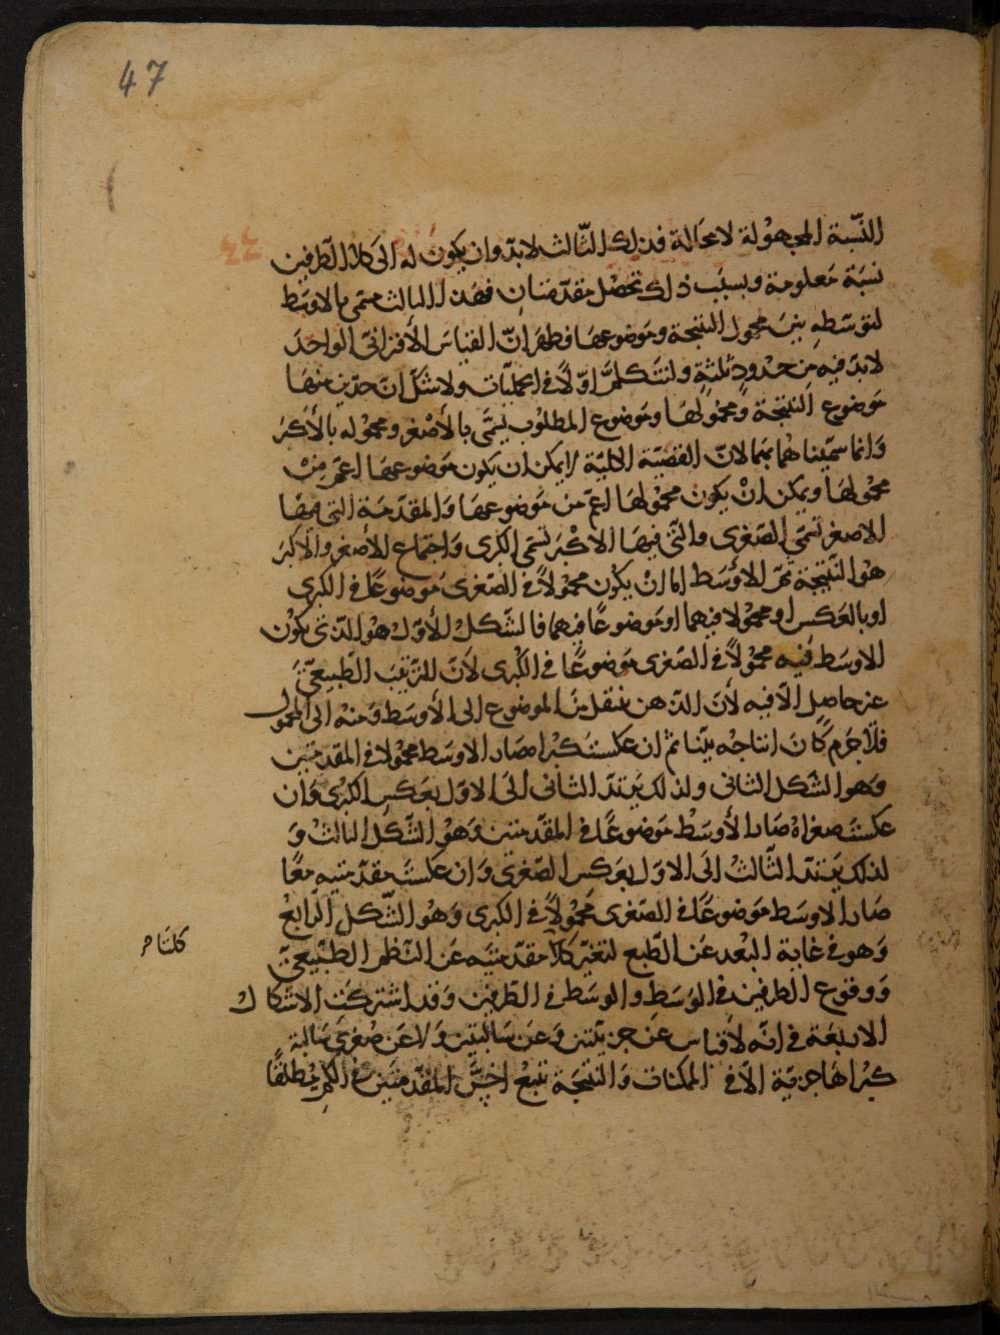 47
٤٤
النّسبة المجهولة لا محالة فذلك الثّالث لا بدّ وان يكون له الى كلا الطّرفين
نسبة معلومة وبسبب ذلك تحصل مقدّمتان فهذا الثالث يسمّى بالاوسط
لتوسّطه بين محمول النتيجة وموضوعها فظهر انّ القياس الأقترانىّ الواحد
لا بدّ فيه من حدود ثلثة ولنتكلّم اوّلاً فى الحمليّات ولا شكّ انّ حدّين منها
موضوع النتيجة ومحمولها وموضوع المطلوب يسمّى بالأصغر ومحموله بالأكبر
وانما سمّيناهما بهما لانّ القضيّة الكليّة لا يمكن ان يكون موضوعها اعمّ من
محمولها ويمكن انْ يكون محمولها اعمّ من موضوعها والمقدّمة التى فيها
الاصغر تسمّى الصّغرى والتى فيها الاكبر تسمّى الكبرى واجتماع الأصغر والأكبر
هو النّتيجة ثمّ الاوْسط اما انْ يكون محمولاً فى الصّغرى موضوعًا فى الكبرى
او بالعكس او محمولا فيهما او موضوعًا فيهما فالشّكل الأوّل هو الّذى يكوْن
الاوسط فيه محمولاً فى الصّغرى موضوعًا فى الكبرى لأنّ الترتيب الطّبيعىّ
غير حاصل الّا فيه لأنّ الذّهن ينتقل من الموضوع الى الأوسط ومنه الى المحمول
فلا جرم كان انتاجه بيّنا ثم ان عكست كبراه صار الاوسط محمولا فى المقدّمتين
وهو الشّكل الثانى ولذلك يرتدّ الثانى الى الاوّل بعكس الكبرى وان
عكست صغراهْ صار الأوسط موضوعًا فى المقدّمتين وهوْ الشّكل الثالث و
لذلك يرتدّ الثّالث الى الاوّل بعكس الصّغرى وان عكست مقدّمتيه معًا
صار الاوسط موضوعًا فى الصّغرى محمولاً فى الكبرى وهو الشّكل الرّابع
وهو فى غاية البعد عن الطّبع لتغيّر كلا مقدّمتيه عن النّظم الطّبيعىّ
كلتا
ووقوع الطرفين فى الوسط والوسط فى الطّرفين وقد اشتركت الاشكال
الاربعة فى انّه لا قياس عن جزئيّتين وعن سالبتين ولا عن صغرى سالبة
كبراها جزئيّة الاّ فى الممكنات والنّتيجة تتبع اخسّ المقدّمتين فى الكمّ مطلقًا